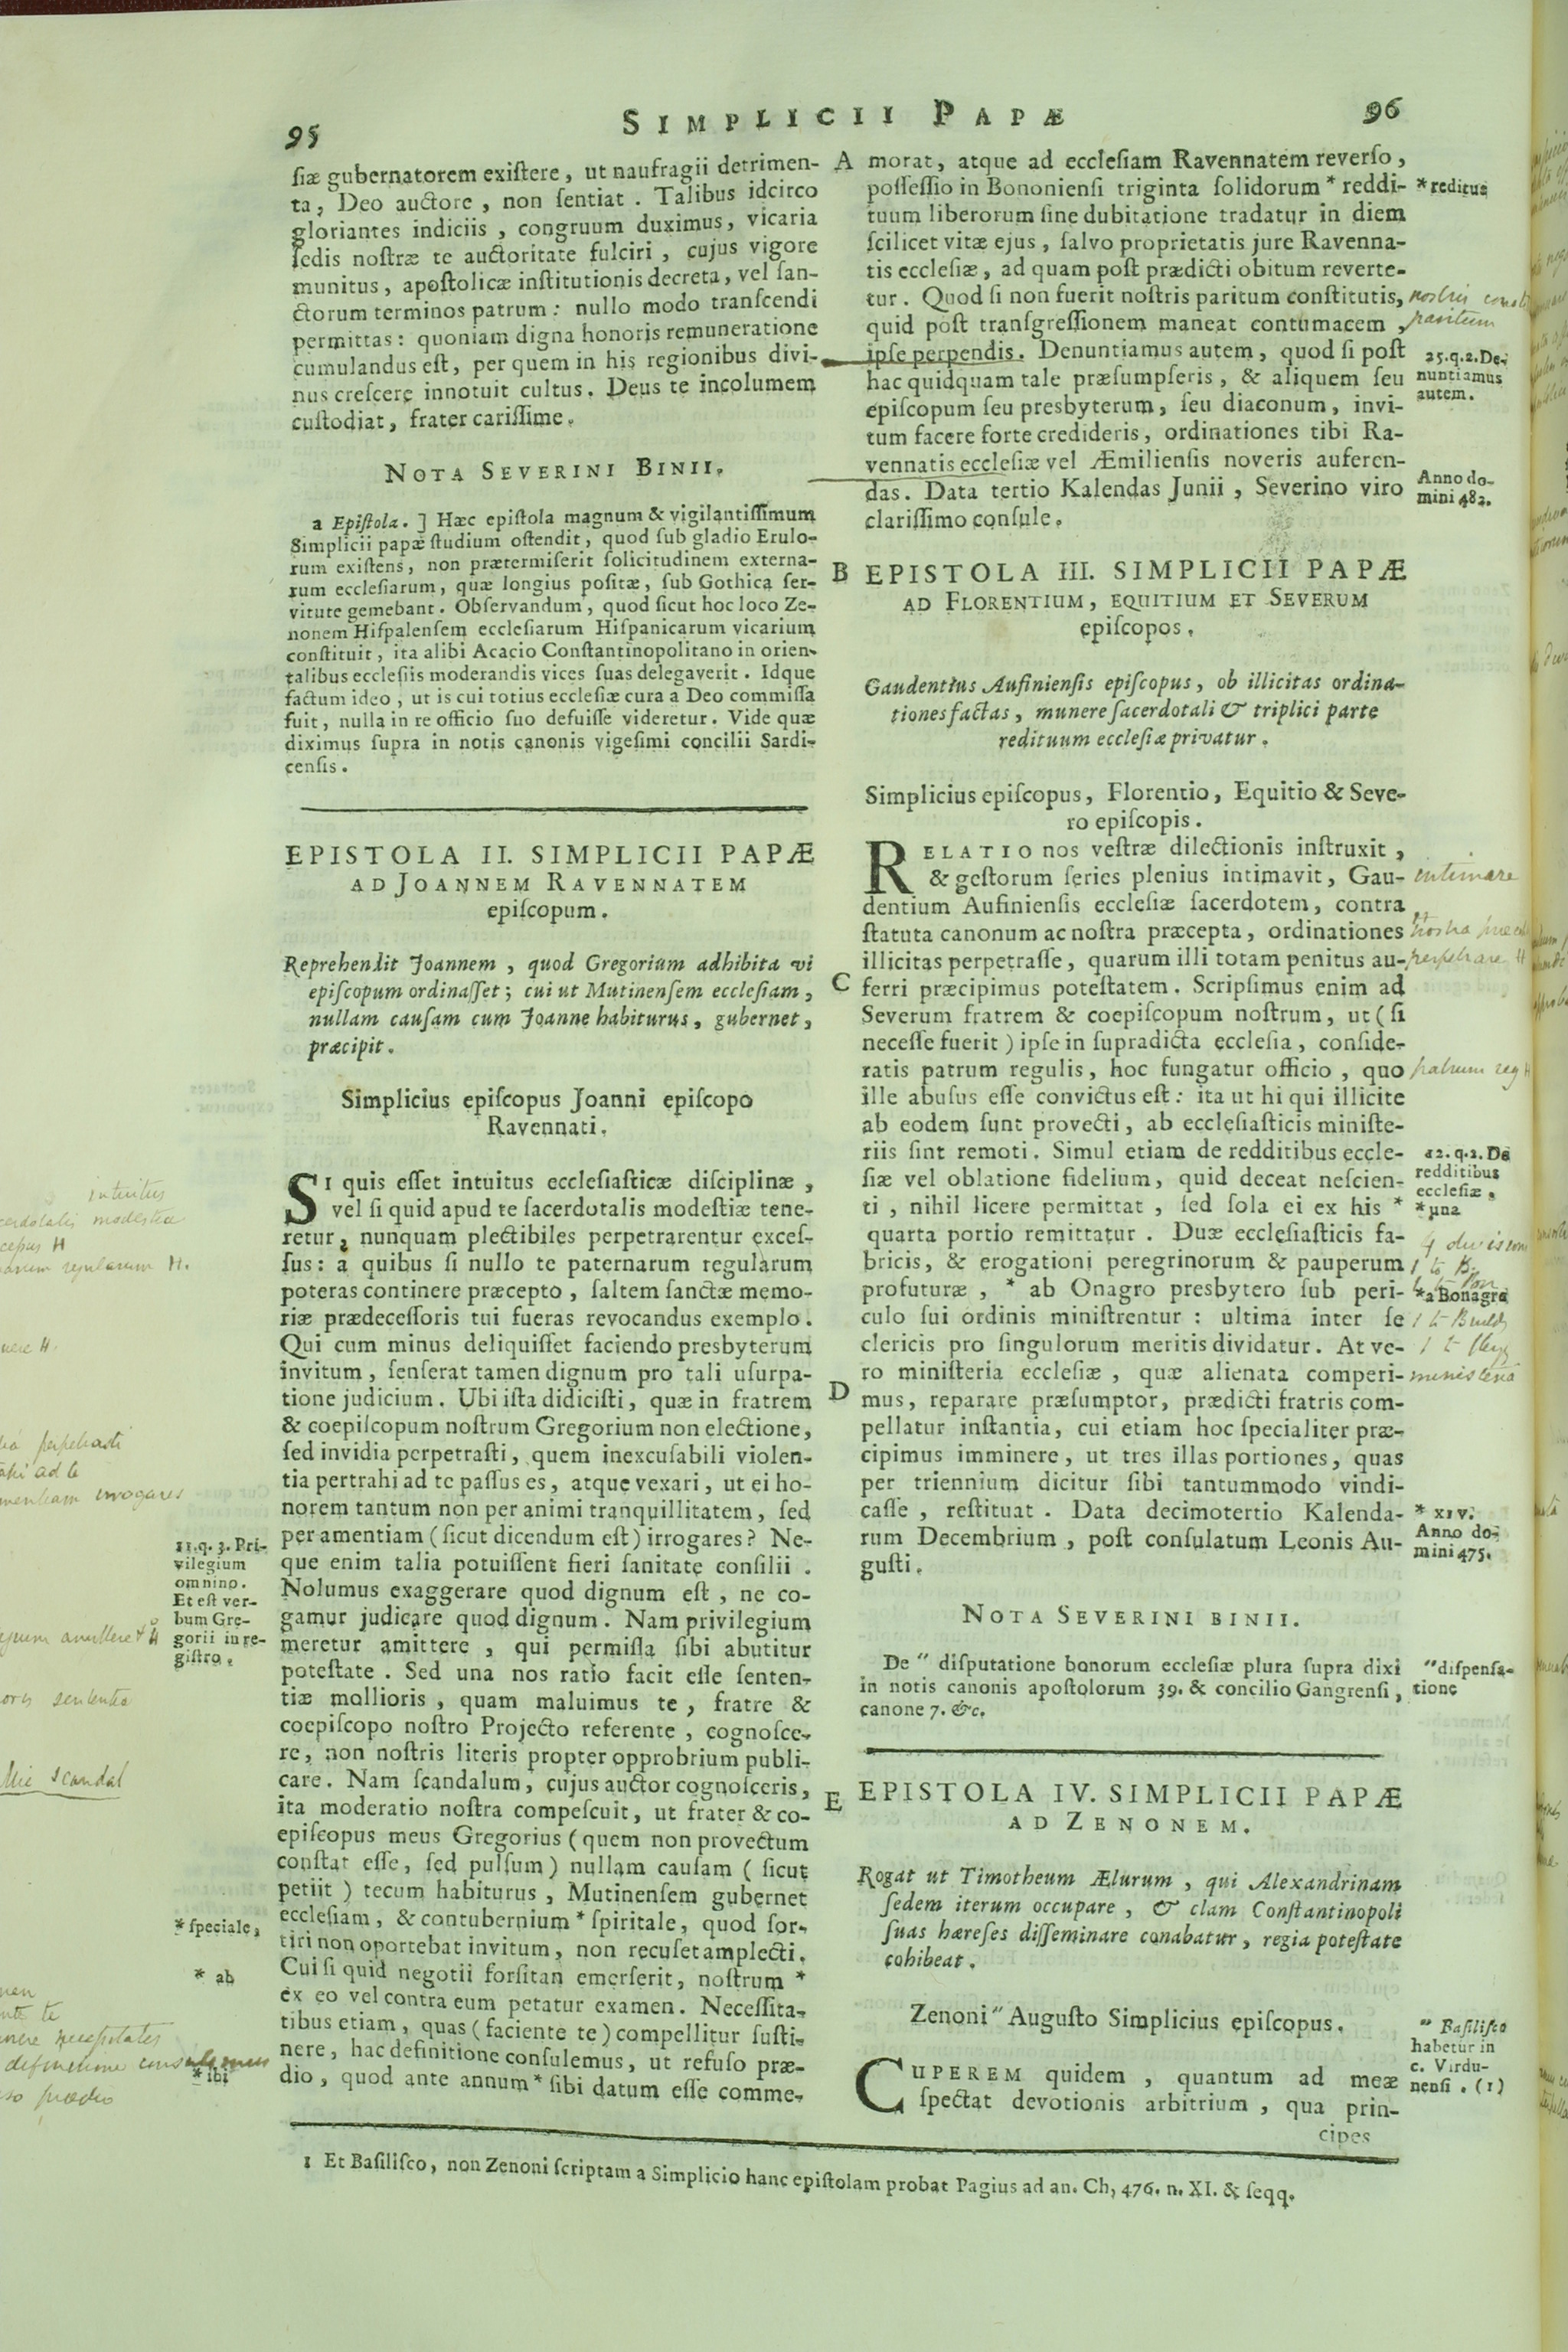 95
SIMPLICII PAPÆ
96
ſiæ gubernatorem exiſtere, ut naufragii detrimen-
ta, Deo auctore, non ſentiat. Talibus idcirco
gloriantes indiciis, congruum duximus, vicaria
ſedis noſtræ te auctoritate fulciri, cujus vigore
munitus, apoſtolicæ inſtitutionis decreta, vel ſan-
ctorum terminos patrum: nullo modo tranſcendi
permittas: quoniam digna honoris remuneratione
cumulandus eſt, per quem in his regionibus divi-
nus creſcere innotuit cultus. Deus te incolumem
cuſtodiat, frater cariſſime.
NOTA SEVERINI BINII.
a Epiſtola. ] Hæc epiſtola magnum & vigilantiſſimum
Simplicii papæ ſtudium oſtendit, quod ſub gladio Erulo-
rum exiſtens, non prætermiſerit ſolicitudinem externa-
rum eccleſiarum, quæ longius poſitæ, ſub Gothica ſer-
vitute gemebant. Obſervandum, quod ſicut hoc loco Ze-
nonem Hiſpalenſem eccleſiarum Hiſpanicarum vicarium
conſtituit, ita alibi Acacio Conſtantinopolitano in orien-
talibus eccleſiis moderandis vices ſuas delegaverit. Idque
factum ideo, ut is cui totius eccleſiæ cura a Deo commiſſa
fuit, nulla in re officio ſuo defuiſſe videretur. Vide quæ
diximus ſupra in notis canonis vigeſimi concilii Sardi-
cenſis.
EPISTOLA II. SIMPLICII PAPÆ
AD JOANNEM RAVENNATEM
epiſcopum.
Reprehendit Joannem, quod Gregorium adhibita vi
epiſcopum ordinaſſet; cui ut Mutinenſem eccleſiam,
nullam cauſam cum Joanne habiturus, gubernet,
præcipit.
Simplicius epiſcopus Joanni epiſcopo
Ravennati.
SI quis eſſet intuitus eccleſiaſticæ diſciplinæ,
vel ſi quid apud te ſacerdotalis modeſtiæ tene-
retur, nunquam plectibiles perpetrarentur exceſ-
ſus: a quibus ſi nullo te paternarum regularum
poteras continere præcepto, ſaltem ſanctæ memo-
riæ prædeceſſoris tui fueras revocandus exemplo.
Qui cum minus deliquiſſet faciendo presbyterum
invitum, ſenſerat tamen dignum pro tali uſurpa-
tione judicium. Ubi iſta didiciſti, quæ in fratrem
& coepiſcopum noſtrum Gregorium non electione,
ſed invidia perpetraſti, quem inexcuſabili violen-
tia pertrahi ad te paſſus es, atque vexari, ut ei ho-
norem tantum non per animi tranquillitatem, ſed
per amentiam (ſicut dicendum eſt) irrogares? Ne-
que enim talia potuiſſent fieri ſanitate conſilii.
Nolumus exaggerare quod dignum eſt, ne co-
gamur judicare quod dignum. Nam privilegium
meretur amittere, qui permiſſa ſibi abutitur
poteſtate. Sed una nos ratio facit eſſe ſenten-
tiæ mollioris, quam maluimus te, fratre &
coepiſcopo noſtro Projecto referente, cognoſce-
re, non noſtris literis propter opprobrium publi-
care. Nam ſcandalum, cujus auctor cognoſceris,
ita moderatio noſtra compeſcuit, ut frater & co-
epiſcopus meus Gregorius (quem non provectum
conſtat eſſe, ſed pulſum) nullam cauſam (ſicut
petiit) tecum habiturus, Mutinenſem gubernet
eccleſiam, & contubernium * ſpiritale, quod ſor-
tiri non oportebat invitum, non recuſet amplecti.
Cui ſi quid negotii forſitan emerſerit, noſtrum *
ex eo vel contra eum petatur examen. Neceſſita-
tibus etiam, quas (faciente te) compellitur ſuſti-
nere, hac definitione conſulemus, ut refuſo præ-
dio, quod ante annum * ſibi datum eſſe comme-
intuitus
H
H.
H.
perpetrasti
ad te
irrogares
11.q. 3. Pri-
vilegium
omnino.
Et eſt ver-
bum Gre-
gorii in re-
giſtro.
sententia
scandal
* ſpeciale,
* ab
te
necessitates
definitione consulemus
* ibi
prædio
A
B
C
D
E
morat, atque ad eccleſiam Ravennatem reverſo,
poſſeſſio in Bononienſi triginta ſolidorum * reddi-
tuum liberorum ſine dubitatione tradatur in diem
ſcilicet vitæ ejus, ſalvo proprietatis jure Ravenna-
tis eccleſiæ, ad quam poſt prædicti obitum reverte-
tur. Quod ſi non fuerit noſtris paritum conſtitutis,
quid poſt tranſgreſſionem maneat contumacem,
ipſe perpendis. Denuntiamus autem, quod ſi poſt
hac quidquam tale præſumpſeris, & aliquem ſeu
epiſcopum ſeu presbyterum, ſeu diaconum, invi-
tum facere forte credideris, ordinationes tibi Ra-
vennatis eccleſiæ vel Æmilienſis noveris auferen-
das. Data tertio Kalendas Junii, Severino viro
clariſſimo conſule.
* reditus
nostris
paritum
25.q.2. De-
nuntiamus
autem.
Anno do-
mini 482.
EPISTOLA III. SIMPLICII PAPÆ
AD FLORENTIUM, EQUITIUM ET SEVERUM
epiſcopos.
Gaudentius Aufinienſis epiſcopus, ob illicitas ordina-
tiones factas, munere ſacerdotali & triplici parte
redituum eccleſiæ privatur.
Simplicius epiſcopus, Florentio, Equitio & Seve-
ro epiſcopis.
RELATIO nos veſtræ dilectionis inſtruxit,
& geſtorum ſeries plenius intimavit, Gau-
dentium Aufinienſis eccleſiæ ſacerdotem, contra
ſtatuta canonum ac noſtra præcepta, ordinationes
illicitas perpetraſſe, quarum illi totam penitus au-
ferri præcipimus poteſtatem. Scripſimus enim ad
Severum fratrem & coepiſcopum noſtrum, ut (ſi
neceſſe fuerit) ipſe in ſupradicta eccleſia, conſide-
ratis patrum regulis, hoc fungatur officio, quo
ille abuſus eſſe convictus eſt: ita ut hi qui illicite
ab eodem ſunt provecti, ab eccleſiaſticis miniſte-
riis ſint remoti. Simul etiam de redditibus eccle-
ſiæ vel oblatione fidelium, quid deceat neſcien-
ti, nihil licere permittat, ſed ſola ei ex his *
quarta portio remittatur. Duæ eccleſiaſticis fa-
bricis, & erogationi peregrinorum & pauperum
profuturæ, * ab Onagro presbytero ſub peri-
culo ſui ordinis miniſtrentur: ultima inter ſe
clericis pro ſingulorum meritis dividatur. At ve-
ro miniſteria eccleſiæ, quæ alienata comperi-
mus, reparare præſumptor, prædicti fratris com-
pellatur inſtantia, cui etiam hoc ſpecialiter præ-
cipimus imminere, ut tres illas portiones, quas
per triennium dicitur ſibi tantummodo vindi-
caſſe, reſtituat. Data decimotertio Kalenda-
rum Decembrium, poſt conſulatum Leonis Au-
guſti.
intimare
nostra
perpetrare H
patrum reg
12.q.2. De
redditibus
eccleſiæ.
* una
* a Bonagro
ministeria
* XIV.
Anno do-
mini 475.
NOTA SEVERINI BINII.
De " diſputatione bonorum eccleſiæ plura ſupra dixi
in notis canonis apoſtolorum 39. & concilio Gangrenſi,
canone 7. &c.
" diſpenſa-
tione
EPISTOLA IV. SIMPLICII PAPÆ
AD ZENONEM.
Rogat ut Timotheum Ælurum, qui Alexandrinam
ſedem iterum occupare, & clam Conſtantinopoli
ſuas hæreſes diſſeminare conabatur, regia poteſtate
cohibeat.
Zenoni " Auguſto Simplicius epiſcopus.
CUPEREM quidem, quantum ad meæ
ſpectat devotionis arbitrium, qua prin-
cipes
" Baſiliſco
habetur in
c. Virdu-
nenſi. (1)
1 Et Baſiliſco, non Zenoni ſcriptam a Simplicio hanc epiſtolam probat Pagius ad an. Ch, 476. n. XI. & ſeqq.